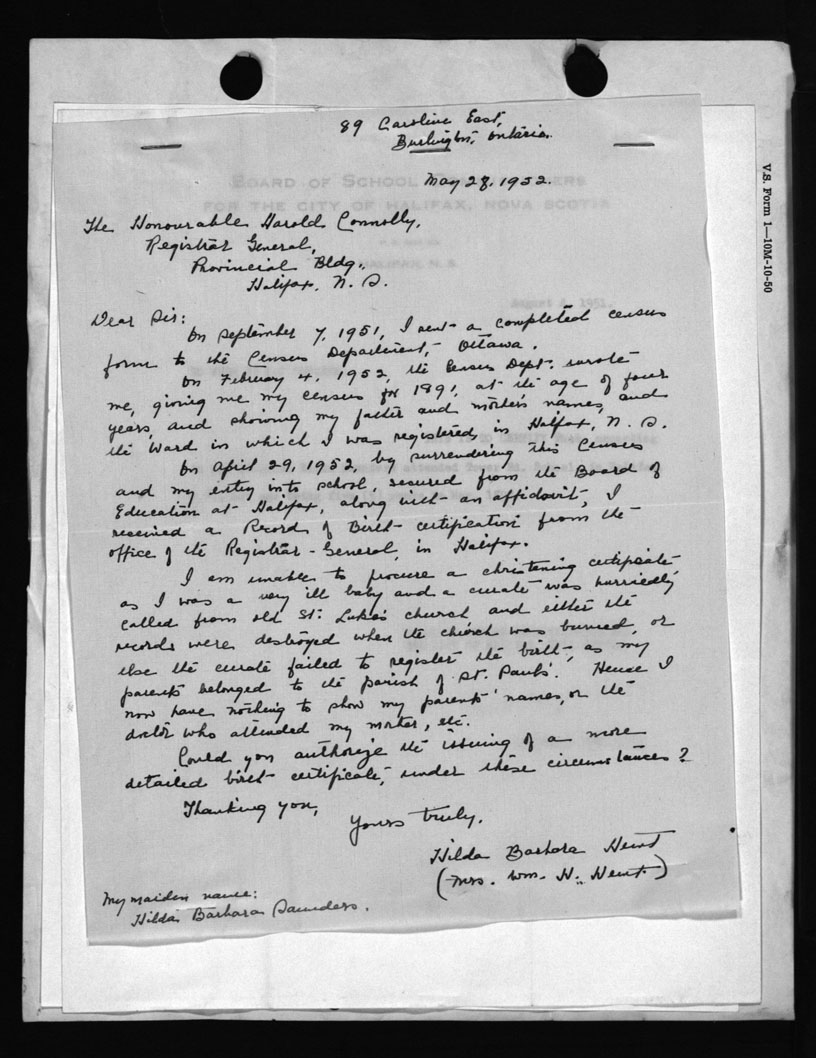 89 Caroline East,
Burlington, Ontario.
May 28, 1952.
BOARD OF SCHOOL COMMISSIONERS
FOR THE CITY OF HALIFAX, NOVA SCOTIA
HALIFAX, N. S.
August 1951.
The Honourable Harold Connolly,
Registrar General,
Provincial Bldg.,
Halifax, N. S.
Dear Sir:
On September 7, 1951, I sent a completed census
form to the Census Department, Ottawa.
On February 4, 1952, the Census Dept. wrote
me, giving me my census for 1891, at the age of four
years, and showing my father and mother's names, and
the Ward in which I was registered, in Halifax, N. S.
On April 29, 1952, by surrendering this Census
and my entry into school, secured from the Board of
Education at Halifax, along with an affidavit, I
received a Record of Birth certification from the
office of the Registrar-General, in Halifax.
I am unable to procure a christening certificate
as I was a very ill baby and a curate was hurriedly
called from old St. Luke's church and either the
records were destroyed when the church was burned, or
else the curate failed to register the birth, as my
parents belonged to the parish of St. Paul's. Hence I
now have nothing to show my parents' names, or the
doctor who attended my mother, etc.
Could you authorize the issuing of a more
detailed birth certificate, under these circumstances?
Thanking you,
Yours truly,
Hilda Barbara
(Mrs. Wm. H.
My maiden name:
Hilda Barbara Saunders.
V.S. Form 1—10M-10-50